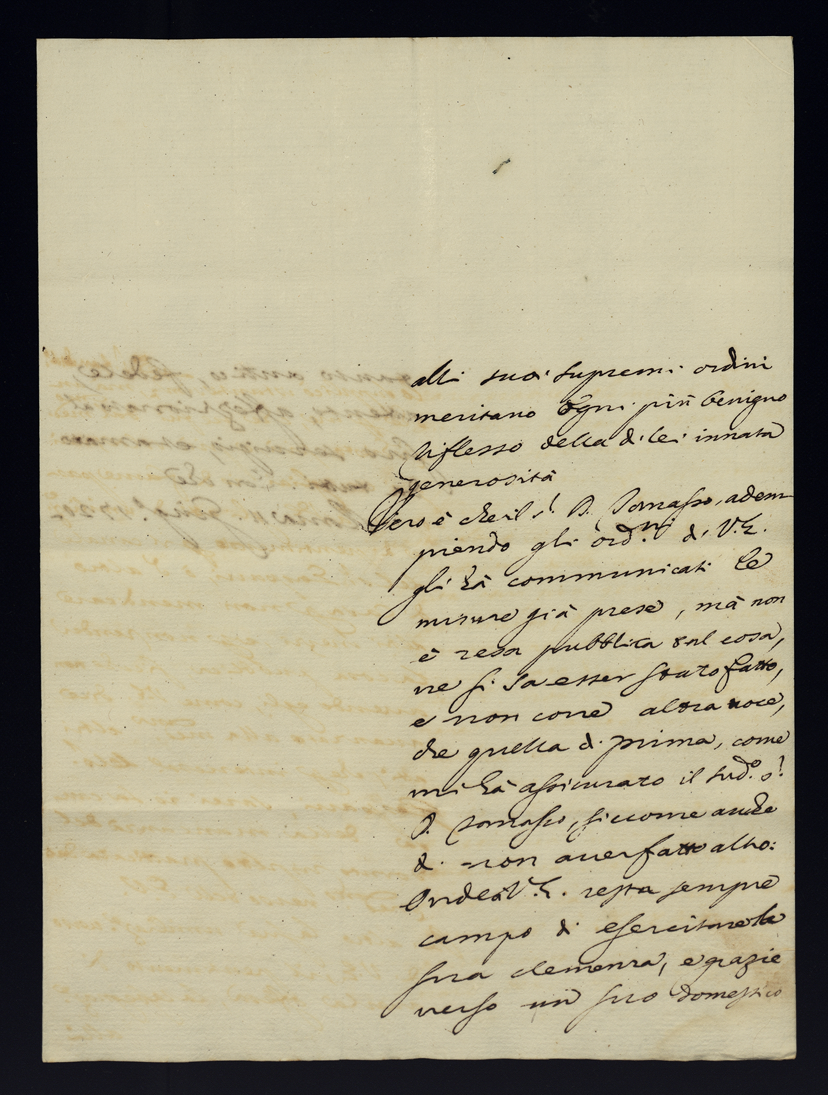 alli suoi supremi ordini
meritano ogni più benigno
riflesso della di lei innata
generosità
Vero è che il S.r D. Tomasso, adem-
piendo gli ord.ni di V.E.
gli hà communicati le
misure già prese, mà non
è resa pubblica tal cosa,
ne si sa esser stato fatto,
e non corre altra voce,
che quella di prima, come
mi hà assicurato il sud.o S.r
D. Tomasso, siccome anche
di non aver fatto altro:
Onde à V.E. resta sempre
campo di esercitare la
sua clemenza, e grazie
verso un suo domestico